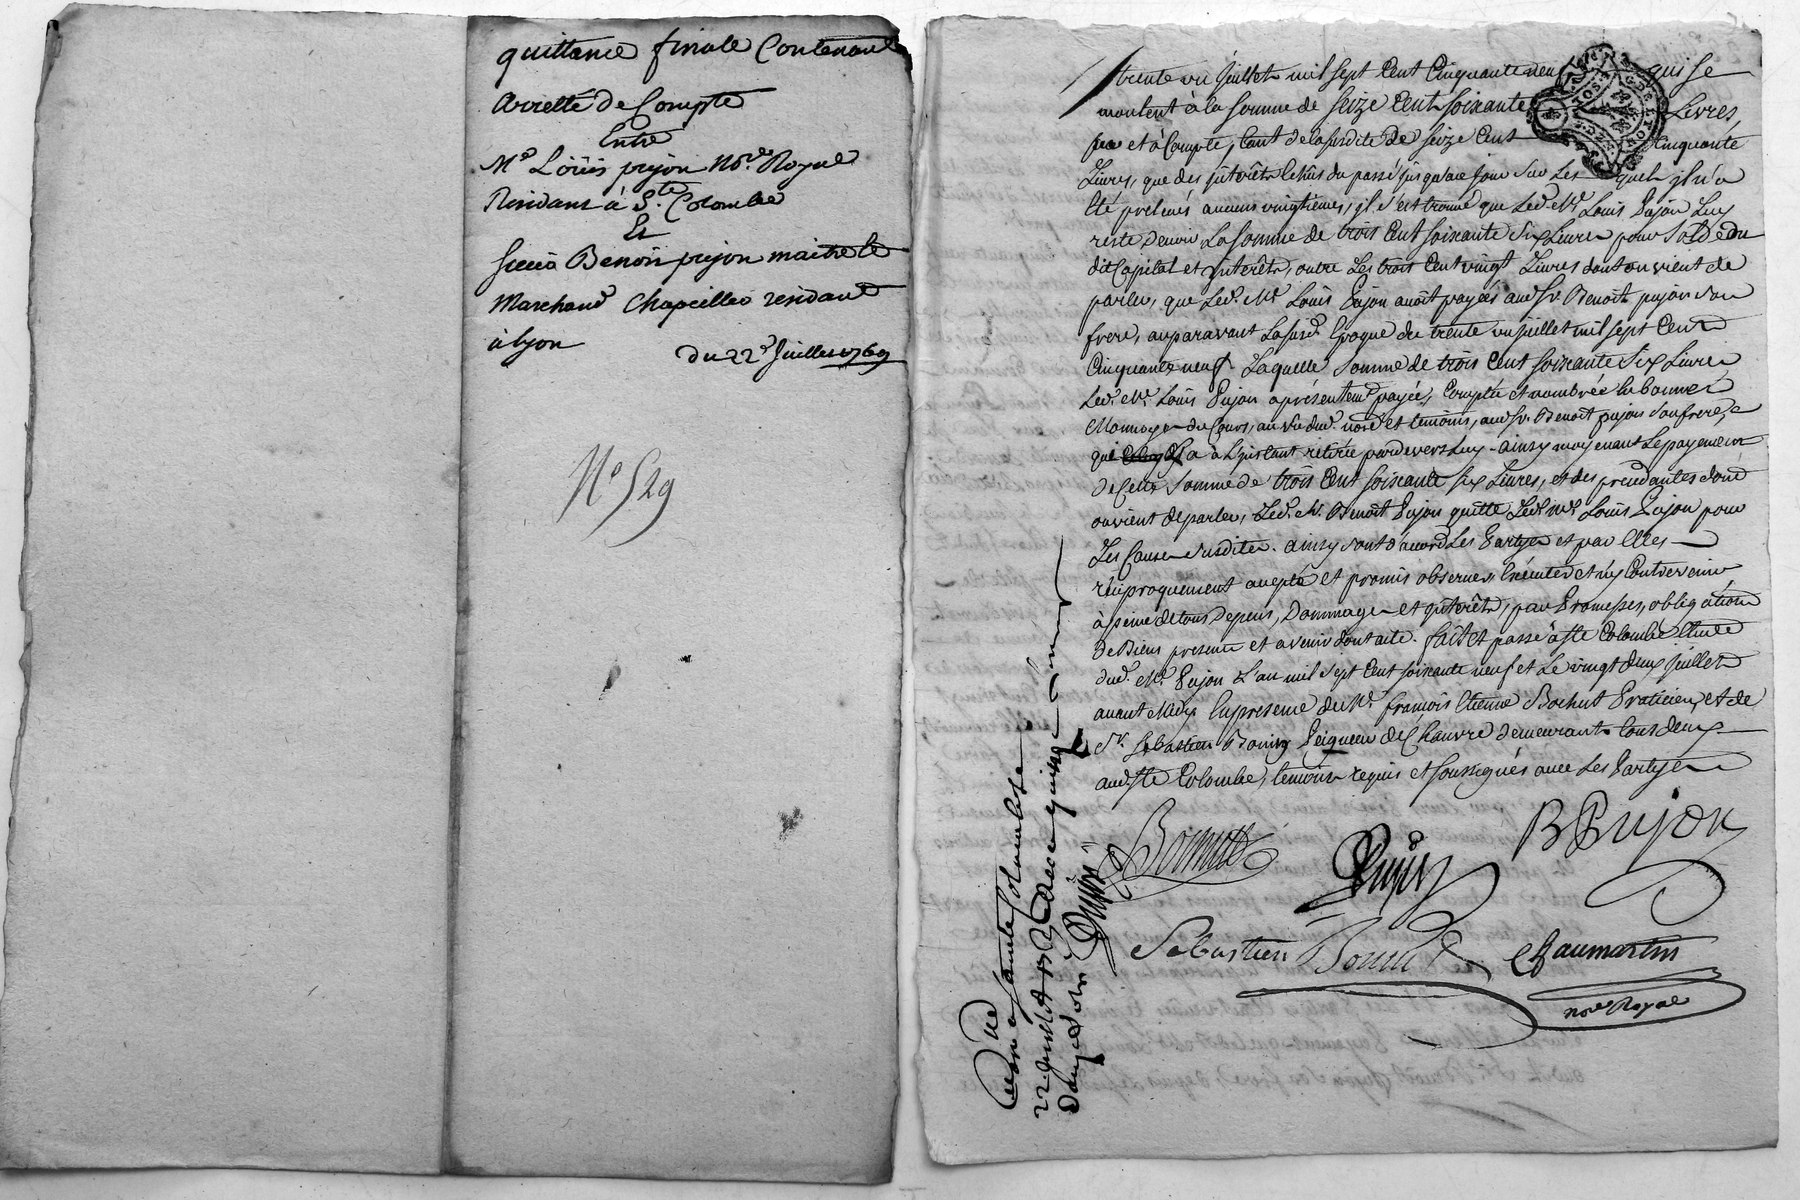 quittance finale Contenant
Arretté de Compte
Entre
Me Loüis pujon Nore Royal
Residant à Ste Colombe
Et
Sieur Benoit pujon maitre et
Marchand Chapellier residant
à lyon
du 22e Juillet 1769
No 529
trente un Juillet mil sept Cent Cinquante neuf qui se
montent à la somme de seize Cent soixante Livres,
et à Compte, tant de la susdite de seize Cent Cinquante
Livres, que des interêts échûs du passé jusqu'au jour sur Lesquels il n'a
été prelevés aucuns vingtiemes, il s'est trouvé que Led. Me. Louis Pujon Luy
reste devoir La somme de trois Cent soixante six Livres pour solde du
dit Capital et interêts, outre Les trois Cent vingt Livres dont on vient de
parler, que Led. Me Loüis Pujon avoit payées aud. Sr. Benoit pujon son
frere, auparavant La susd. Epoque du trente un juillet mil sept Cent
Cinquante neuf. Laquelle somme de trois Cent soixante six Livres
Led. Me. Loüis Pujon a présentemt. payée, Comptée et nombrée en bonnes
Monnoyes de Cours, au vû dud. nore et temoins, aud. Sr. Benoit pujon son frere,
qui L'a à L'instant retirée pardevers Luy. ainsy moyenant Le payement
de Cette somme de trois Cent soixante six Livres, et des précédantes dont
on vient de parler, Led. Sr. Benoît Pujon quitte Led. Me. Loüis Pujon pour
Les Causes susdites. ainsy sont d'acord Les Partyes et par Elles
réciproquement accepté et promis observer, Exécuter et n'y Contrevenir
à peine de tous depens, Dommages et interêts, par Promesses, obligations
de Biens presents et avenir dont acte. fait et passé à Ste Colombe Etude
dud. Me. Pujon L'an mil sept Cent soixante neuf et Le vingt deux juillet
avant Midy En presence de Me. françois Etienne Bochut Praticien, et de
Sr. Sebastien Bonin demeurants tous deux
aud. Ste Colombe, temoins requis et soussignés avec Les Partyes
B Pujon
Bochut
Pujon
Sebastien Bonin
Chaumartin
nore Royal
à sainte Colombe
22 juillet
Pujon